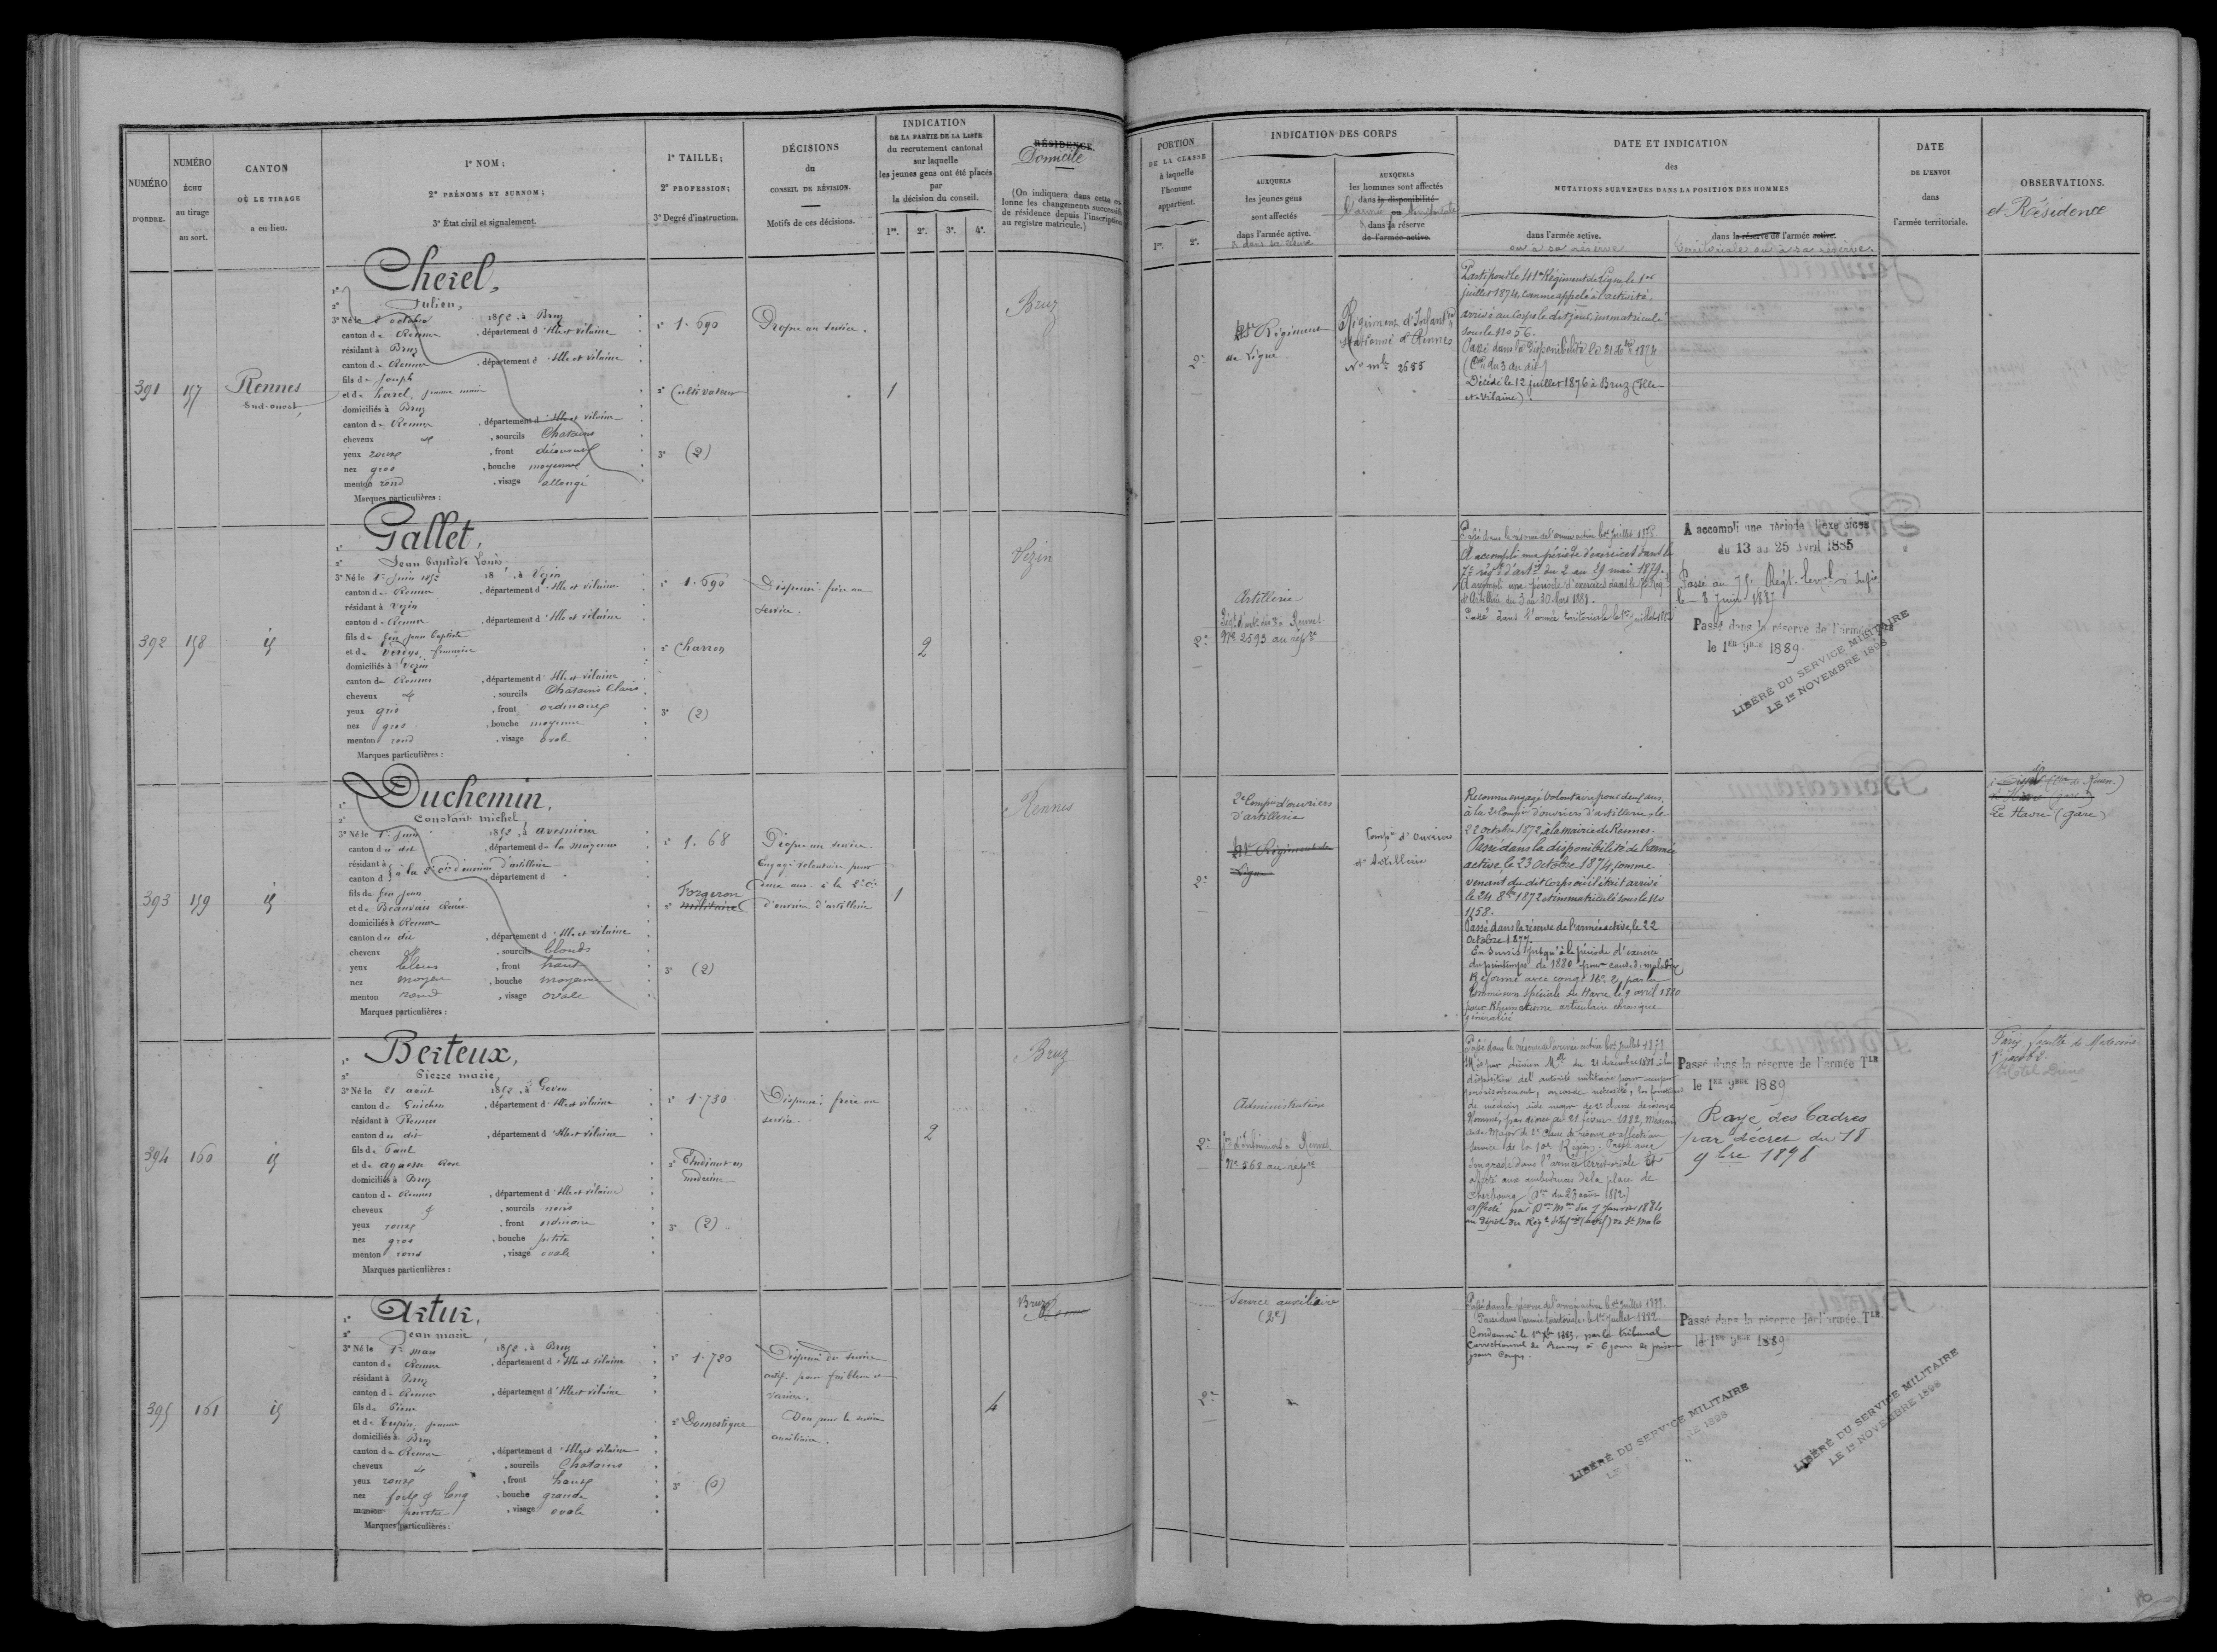 NUMÉRO
D'ORDRE.
NUMÉRO
ÉCHU
au tirage
au sort.
CANTON
OÙ LE TIRAGE
a eu lieu.
1º NOM;
2º PRÉNOMS ET SURNOM;
3º État civil et signalement.
1º TAILLE;
2º PROFESSION;
3º Degré d'instruction.
DÉCISIONS
du
CONSEIL DE RÉVISION.
Motifs de ces décisions.
INDICATION
DE LA PARTIE DE LA LISTE
du recrutement cantonal
sur laquelle
les jeunes gens ont été placés
par
la décision du conseil.
1re. 2e. 3e. 4e.
RÉSIDENCE.
Domicile
(On indiquera dans cette co-
lonne les changements successifs
de résidence depuis l'inscription
au registre matricule.)
PORTION
DE LA CLASSE
à laquelle
l'homme
appartient.
1re. 2e.
INDICATION DES CORPS
AUXQUELS
les jeunes gens
sont affectés
dans l'armée active.
& dans sa réserve
AUXQUELS
les hommes sont affectés
dans la disponibilité
l'armée territoriale
& dans sa réserve
de l'armée active.
DATE ET INDICATION
des
MUTATIONS SURVENUES DANS LA POSITION DES HOMMES
dans l'armée active.
ou à sa réserve
dans la réserve de l'armée active.
territoriale ou à sa réserve.
DATE
DE L'ENVOI
dans
l'armée territoriale.
OBSERVATIONS.
et Résidence
391 157 Rennes
Sud-ouest,
1º Cherel,
2º Julien,
3º Né le 2 octobre 1852, à Bruz
canton de Rennes, département d'Ille et vilaine
résidant à Bruz
canton de Rennes, département d'Ille et vilaine
fils de Joseph
et de harel, jeanne marie
domiciliés à Bruz
canton de Rennes, département d'Ille et vilaine
cheveux et, sourcils Chatains
yeux roux, front découvert
nez gros, bouche moyenne
menton rond, visage allongé
Marques particulières:
1º 1.690
2º Cultivateur
3º (2)
Propre au service.
1
Bruz
2e
41e Régiment
de ligne
Régiment d'Infant
stationné à Rennes
No mle 2655
Parti pour le 41e Régiment de Ligne le 1er
juillet 1874, comme appelé à l'activité,
arrivé au Corps le dit jour, immatriculé
sous le No 56.
Passé dans la disponibilité le 31 Xbre 1874
Décédé le 12 juillet 1876 à Bruz (Ille-
et-Vilaine).
392 158 id
1º Gallet,
2º Jean Baptiste Louis
3º Né le 1er Juin 1852 18 , à Vezin
canton de Rennes, département d'Ille et vilaine
résidant à Vezin
canton de Rennes, département d'Ille et vilaine
fils de feu jean baptiste
domiciliés à Vezin
canton de Rennes, département d'Ille et vilaine
cheveux et, sourcils Chatains clairs
yeux gris, front ordinaire
nez gros, bouche moyenne
menton rond, visage ovale
Marques particulières:
1º 1.690
2º Charron
3º (2)
Dispensé: frère au
service.
2
Vezin
2e
Artillerie
Rennes
No 2593 au répre
Passé dans la réserve de l'armée active le 1er juillet 1878.
A accompli une période d'exercices dans le
7e régt d'artie du 2 au 29 mai 1879.
A accompli une période d'exercices dans le 7e Régt
d'Artillerie du 3 au 30 Mars 1881.
Passé dans l'armée territoriale le 1er juillet 1882
A accompli une période d'exercices
du 13 au 25 Avril 1885
Passé au 75e Régt terral d'Infie
le 8 Juin 1887
Passé dans la réserve de l'armée Tle
le 1er 9bre 1889
LIBÉRÉ DU SERVICE MILITAIRE
LE 1er NOVEMBRE 1898
393 159 id
1º Duchemin,
2º Constant michel,
3º Né le 1er juin 1852, à avesnieres
canton du dit, département de la mayenne
résidant à
canton d à la 2e Cie d'ouvriers d'artillerie, département d
fils de feu jean
et de Beauvais Aimée
domiciliés à Rennes
canton du dit, département d'Ille et vilaine
cheveux et, sourcils blonds
yeux bleus, front haut
nez moyen, bouche moyenne
menton rond, visage ovale
Marques particulières:
1º 1.68
Forgeron
2º militaire
3º (2)
Propre au service.
Engagé volontaire pour
deux ans à la 2e Cie
d'ouvriers d'artillerie
1
Rennes
2e
2e Compie d'ouvriers
d'artillerie
41e Régiment de
Ligne
Compie d'Ouvriers
d'Artillerie
Reconnu engagé Volontaire pour deux ans,
à la 2e Compie d'ouvriers d'artillerie, le
22 octobre 1872, à la mairie de Rennes.
Passé dans la disponibilité de l'armée
active, le 23 Octobre 1874, comme
venant du dit Corps où il était arrivé
le 24 8bre 1872 et immatriculé sous le No
1158.
Passé dans la réserve de l'armée active, le 22
Octobre 1877.
En sursis jusqu'à la période d'exercice
du printemps de 1880 pour cause de maladie
Réformé avec congé No 2, par la
Commission spéciale du Havre le 9 avril 1880
pour Rhumatisme articulaire chronique
généralisé
Le Havre (gare)
394 160 id
1º Berteux,
2º Pierre marie,
3º Né le 21 août 1852, à Goven
canton de Guichen, département d'Ille et vilaine
résidant à Rennes
canton du dit, département d'Ille et vilaine
fils de Paul
et de agaesse Rose
domiciliés à Bruz
canton de Rennes, département d'Ille et vilaine
cheveux et, sourcils noirs
yeux roux, front ordinaire
nez gros, bouche petite
menton rond, visage ovale
Marques particulières:
1º 1.730
2º Etudiant en
médecine
3º (2)
Dispensé: frère au
service.
2
Bruz
2e
Administration
on d'Infirmiers à Rennes
No 568 au répre
Passé dans la réserve de l'armée active le 1er Juillet 1878.
Mis par décision Mlle du 21 décembre 1878 à la
disposition de l'autorité militaire pour occuper
provisoirement, en cas de nécessité, les fonctions
de médecin aide major de 2e classe de réserve
Nommé, par décret du 21 février 1882, Médecin
aide-Major de 2e classe de réserve et affecté au
service de la 10e Région. Passé avec
son grade dans l'armée territoriale et
affecté aux ambulances de la place de
Cherbourg (Don du 23 août 1882)
affecté par Don Mlle du 7 Janvier 1884
au dépôt du Régt d'Infie de St Malo
Passé dans la réserve de l'armée Tle
le 1er 9bre 1889
Rayé des Cadres
par décret du 18
9bre 1898
Paris, faculté de Médecine
395 161 id
1º Artur,
2º Jean marie,
3º Né le 1er mars 1852, à Bruz
canton de Rennes, département d'Ille et vilaine
résidant à Bruz
canton de Rennes, département d'Ille et vilaine
fils de Pierre
et de Crepin, jeanne
domiciliés à Bruz
canton de Rennes, département d'Ille et vilaine
cheveux et, sourcils Chatains
yeux roux, front haut
nez fort & long, bouche grande
menton pointu, visage ovale
Marques particulières:
1º 1.720
2º Domestique
3º (0)
Dispensé du service
actif pour faiblesse et
varices.
Bon pour le service
auxiliaire.
4
Bruz
2e
Service auxiliaire
(2e)
Passé dans la réserve de l'armée active le 1er juillet 1878.
Passé dans l'armée territoriale le 1er Juillet 1882
Condamné le 1er Xbre 1883, par le tribunal
Correctionnel de Rennes à 6 jours de prison
pour Coups.
Passé dans la réserve de l'armée Tle
le 1er 9bre 1889
LIBÉRÉ DU SERVICE MILITAIRE
LE 1898
LIBÉRÉ DU SERVICE MILITAIRE
LE 1er NOVEMBRE 1898